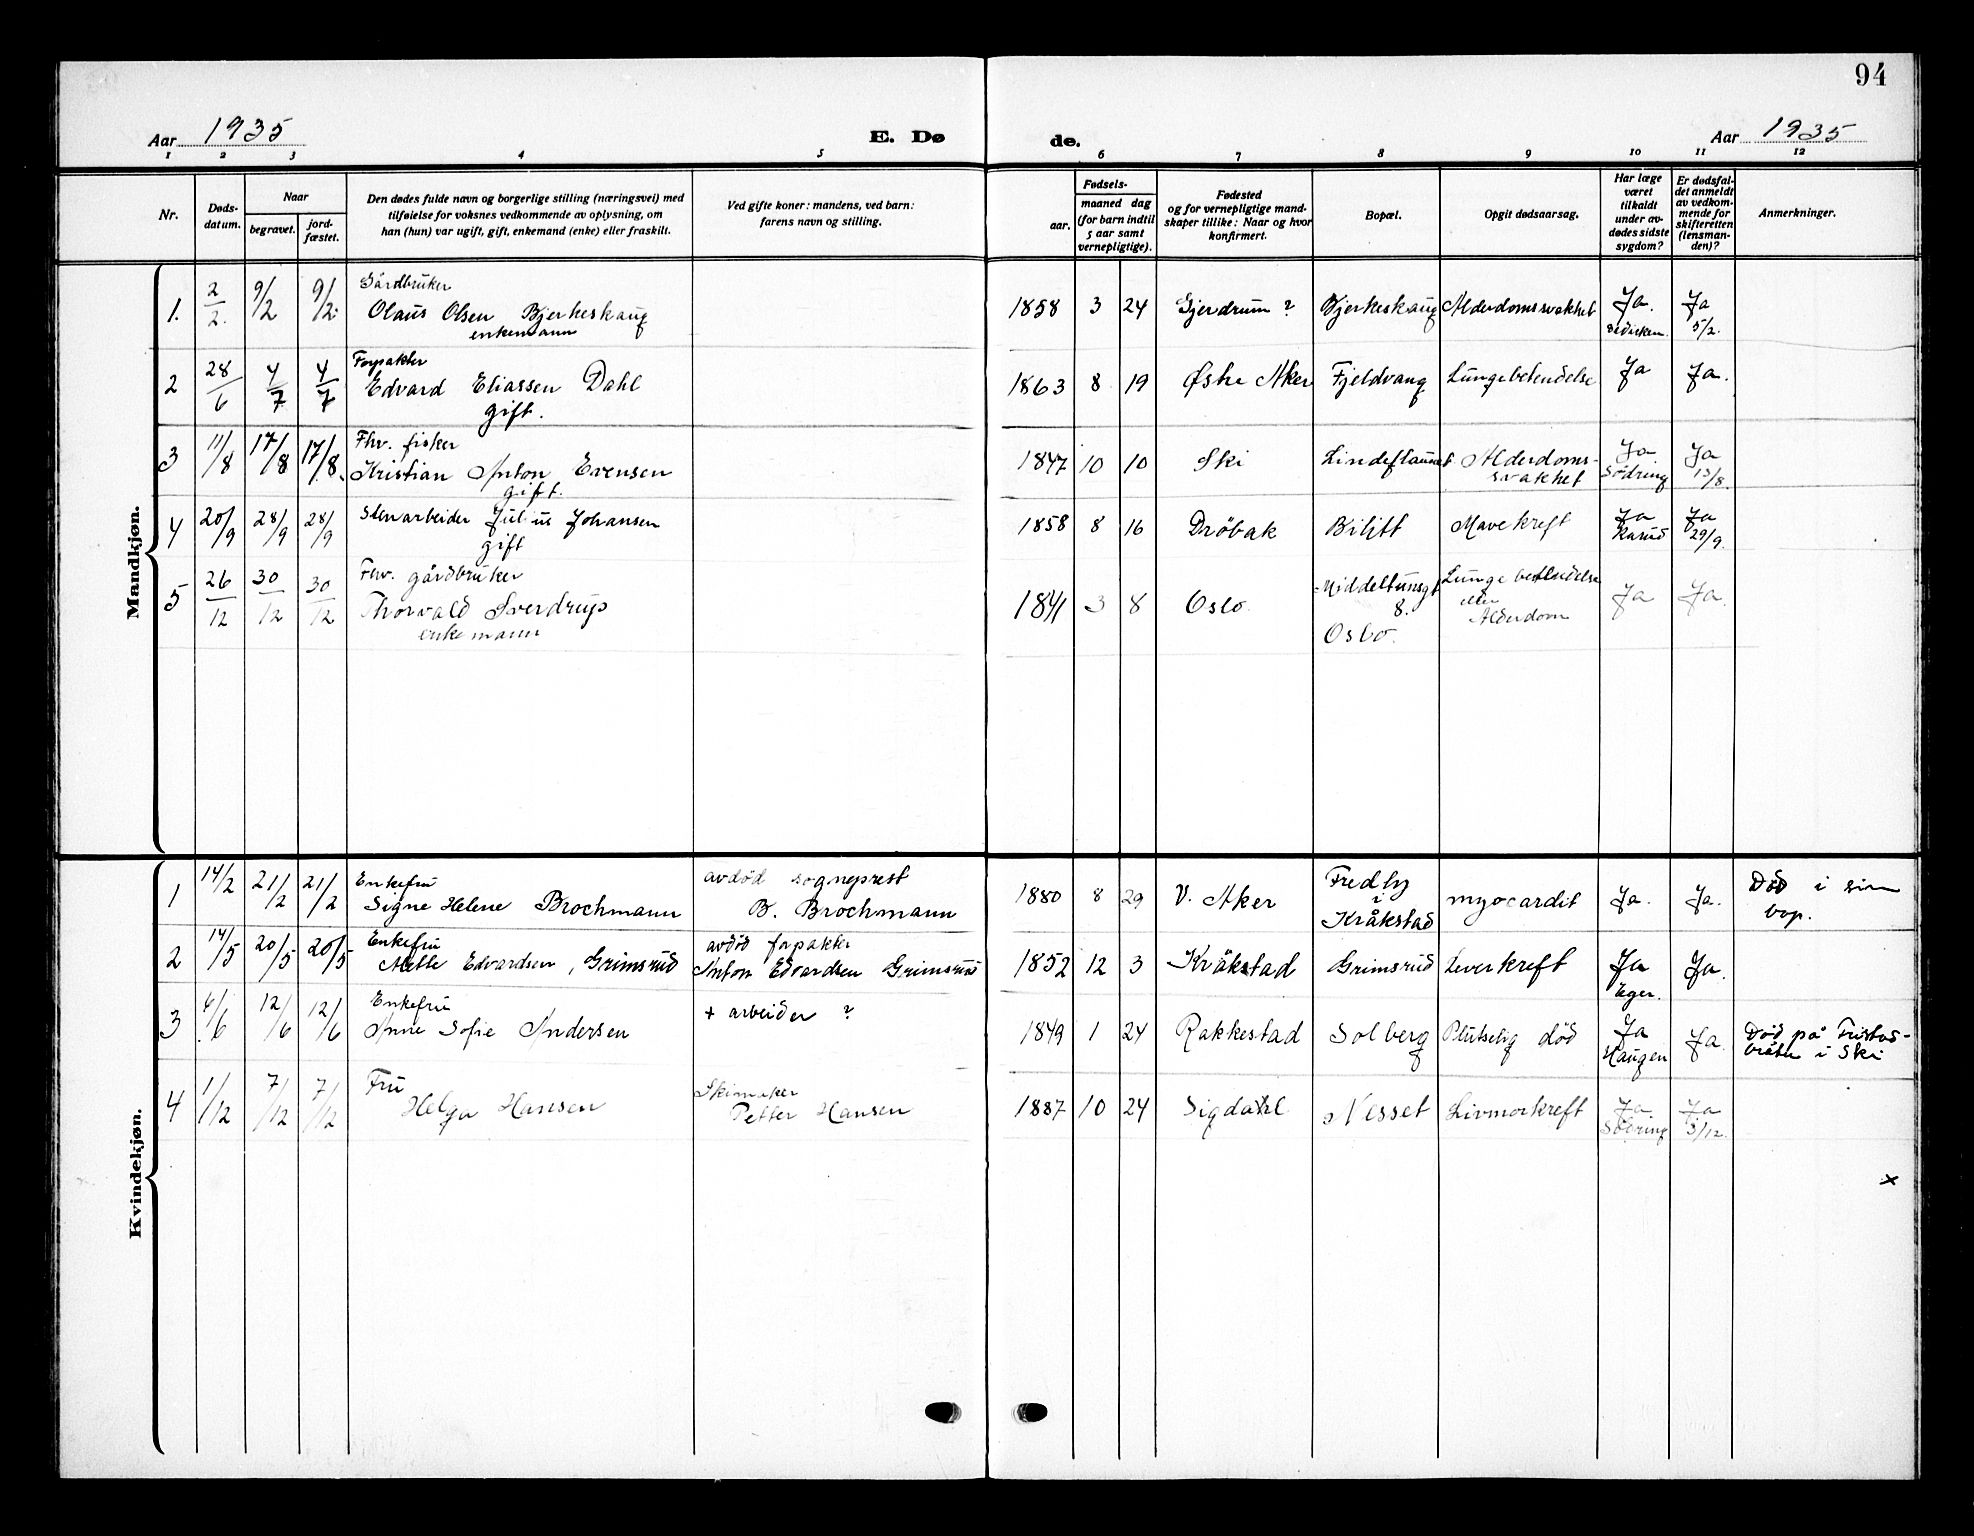 94
Aar 1935
E. Dø
de.
Aar 1935
1 2 3 4 5 6 7 8 9 10 11 12
Nr.
Døds-
datum.
Naar
begravet.
jord-
fæstet.
Den dødes fulde navn og borgerlige stilling (næringsvei) med
tilføielse for voksnes vedkommende av oplysning, om
han (hun) var ugift, gift, enkemand (enke) eller fraskilt.
Ved gifte koner: mandens, ved barn:
farens navn og stilling.
Fødsels-
aar.
maaned dag
(for barn indtil
5 aar samt
vernepligtige).
Fødested
og for vernepligtige mand-
skaper tillike: Naar og hvor
konfirmert.
Bopæl.
Opgit dødsaarsag.
Har læge
været
tilkaldt
under av-
dødes sidste
sygdom?
Er dødsfal-
det anmeldt
av vedkom-
mende for
skifteretten
(lensman-
den)?
Anmerkninger.
Mandkjøn.
Gårdbruker
1. 2/2. 9/2 9/2. Olaus Olsen Bjerkeskaug 1858 3 24 Gjerdrum ? Bjerkeskaug Alderdomssvakhet Ja. Ja
enkemann 5/2.
Forpakter
2 28/6 4/7 4/7 Edvard Eliassen Dahl 1863 8 19 Østre Aker Fjeldvang Lungebetendelse Ja Ja.
gift.
Fhv. fisker
3 11/8 17/8 17/8. Kristian Anton Evensen 1847 10 10 Ski Alderdoms- Ja Ja
gift. svakhet Sødring 13/8.
4 20/9 28/9 28/9 Stenarbeider Julius Johansen 1858 8 16 Drøbak Bilitt Mavekreft Ja Ja
gift 29/9.
Fhv. gårdbruker
5 26/12 30/12 30/12 Thorvald Sverdrup 1841 3 8 Oslo Middeltunsgt Lungebetendelse Ja Ja.
enkemann 8. eller
Oslo. Alderdom
Kvindekjøn.
Enkefru avdød sogneprest Fredly Død i sin
1 14/2 21/2 21/2 Signe Helene Brochmann B. Brochmann 1880 8 29 V. Aker i myocardit Ja. Ja. bop.
Kråkstad
Enkefru avdød forpakter
2 14/5 20/5 20/5 Mette Edvardsen, Grimsrud Anton Edvardsen Grimsrud 1852 12 3 Kråkstad Grimsrud Leverkreft Ja Ja.
Eger.
Enkefru
3 6/6 12/6 12/6 Anne Sofie Andersen + arbeider ? 1849 1 24 Rakkestad Solberg Plutselig død Ja Ja. Død på
Haugen i Ski
Fru Skimaker
4 1/12 7/12 7/12 Helga Hansen Petter Hansen 1887 10 24 Sigdahl Nesset Livmorkreft Ja Ja
Sødring 3/12.
x